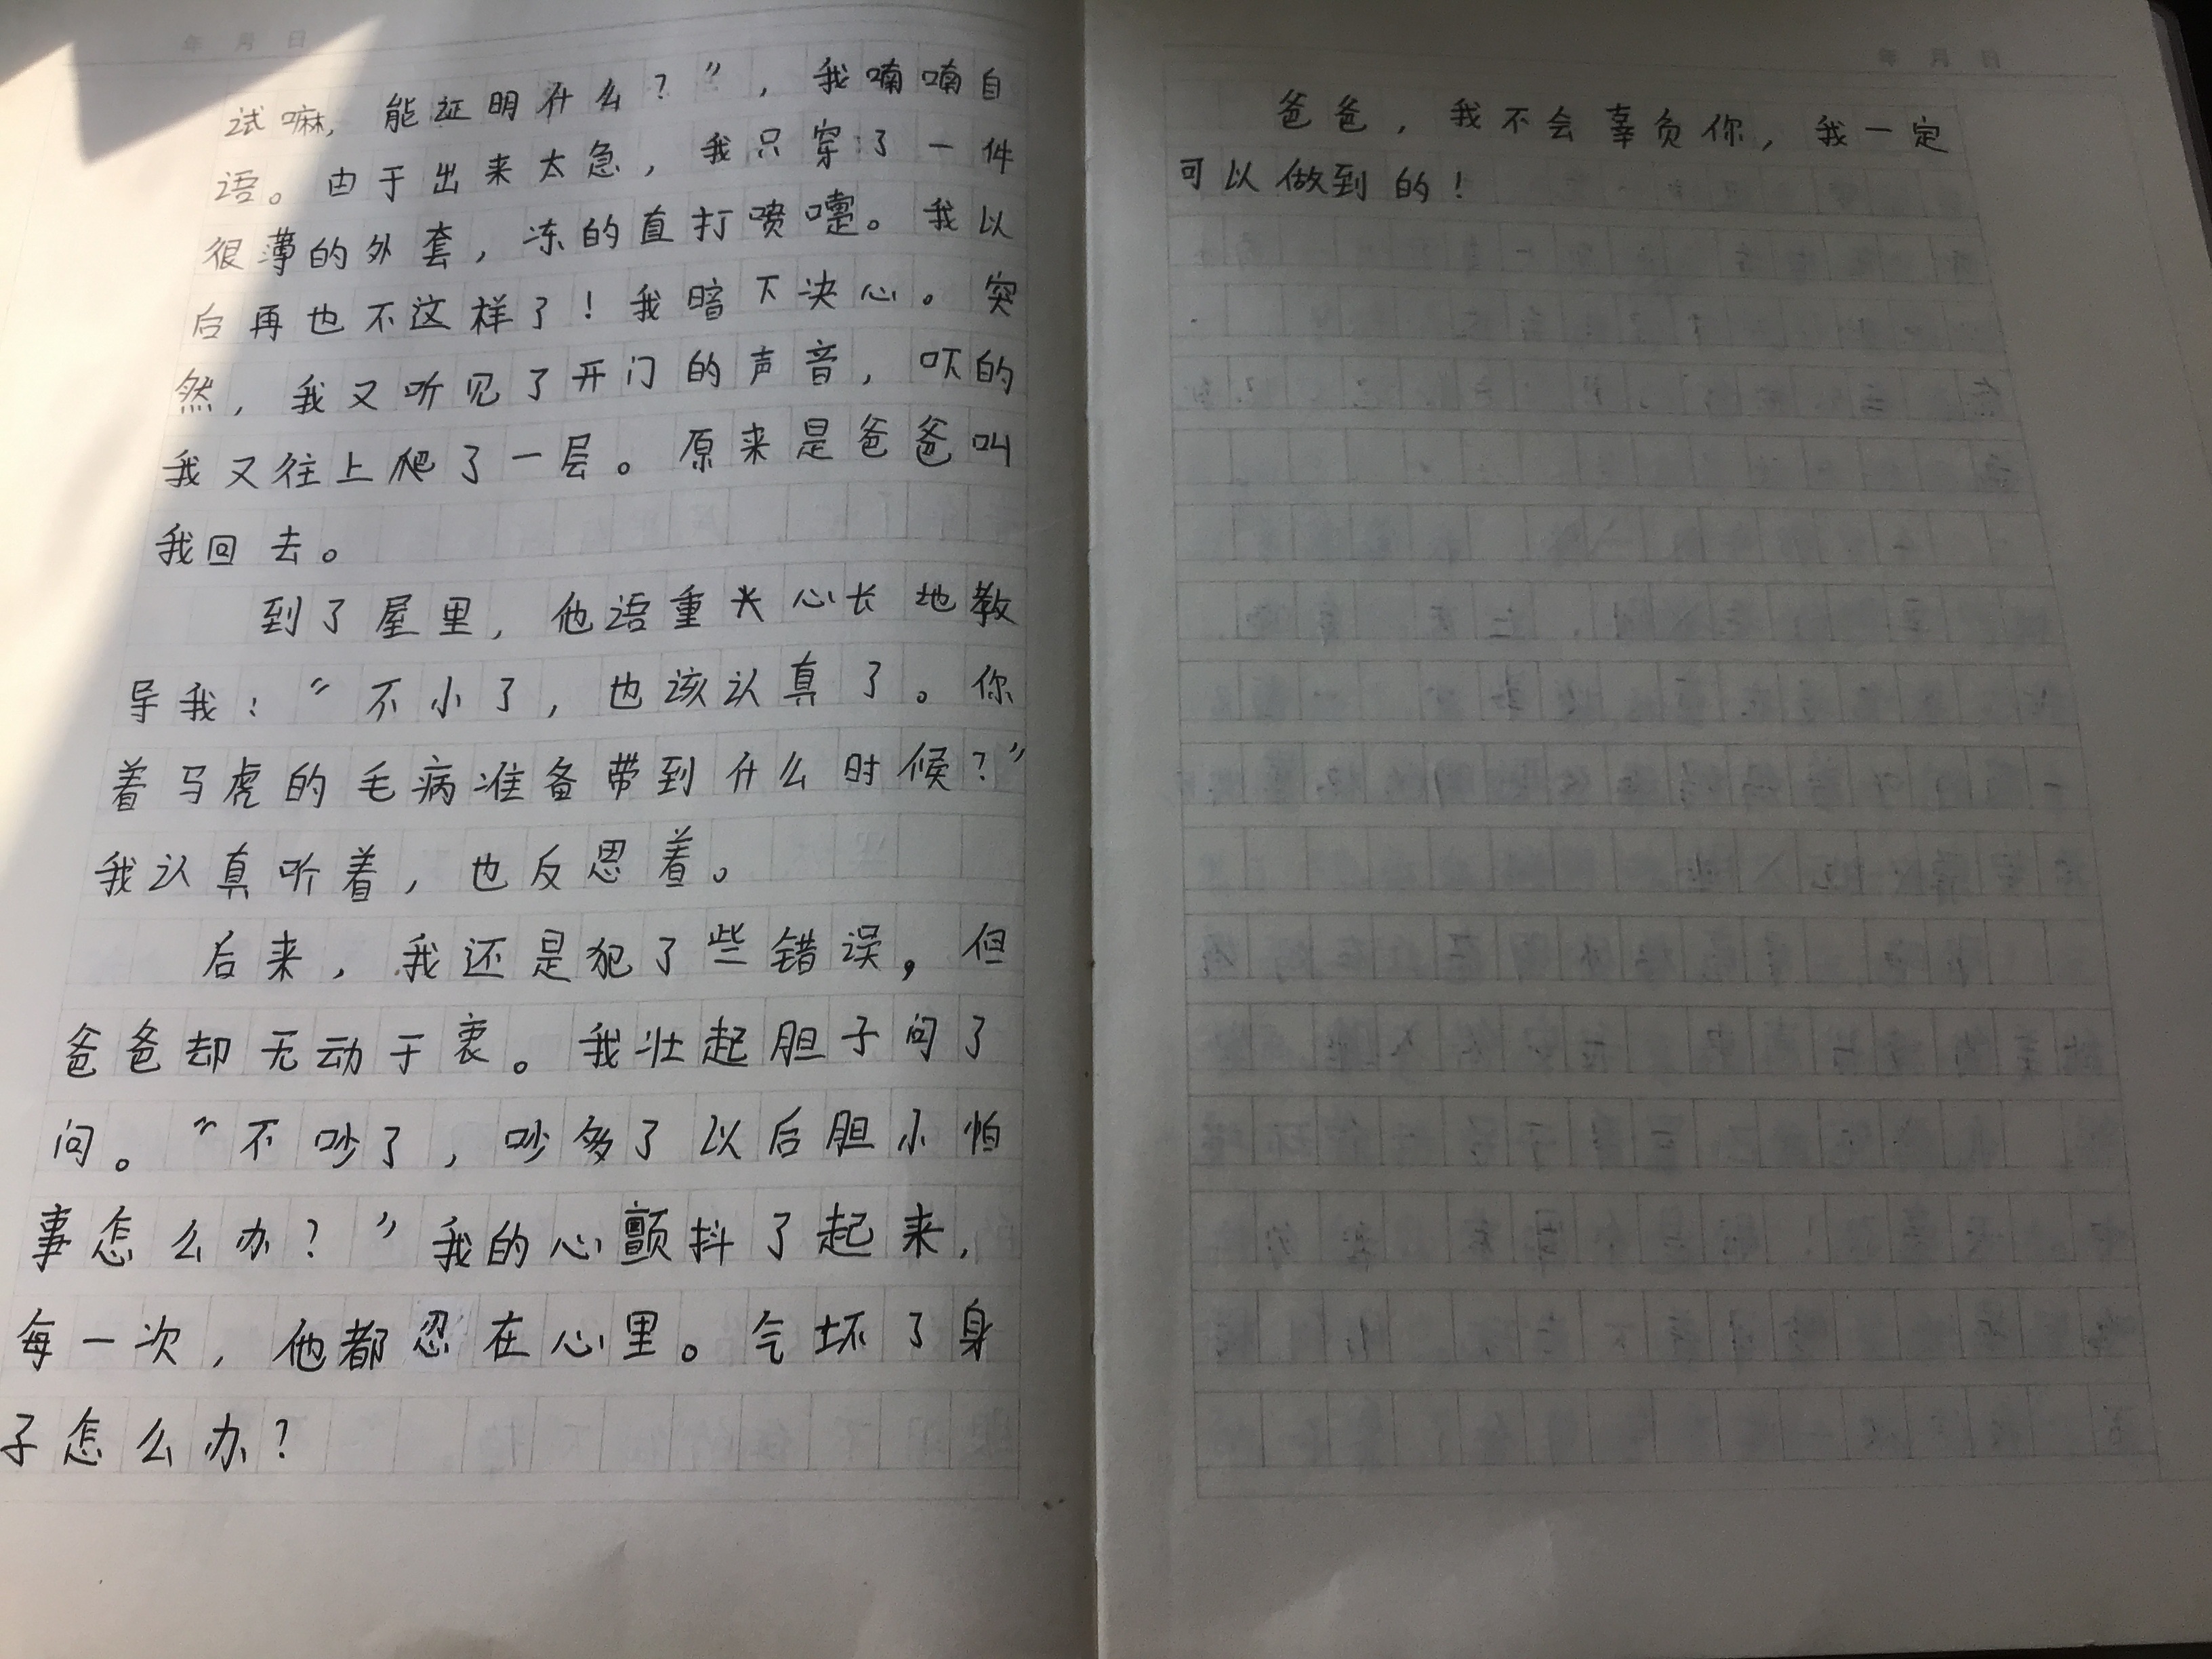 试嘛，能证明什么？”，我喃喃自
语。由于出来太急，我只穿了一件
很薄的外套，冻的直打喷嚏。我以
后再也不这样了！我暗下决心。突
然，我又听见了开门的声音，吓的
我又往上爬了一层。原来是爸爸叫
我回去。
到了屋里，他语重心长地教
导我：“不小了，也该认真了。你
着马虎的毛病准备带到什么时候？”
我认真听着，也反思着。
后来，我还是犯了些错误，但
爸爸却无动于衷。我壮起胆子问了
问。“不吵了，吵多了以后胆小怕
事怎么办？”我的心颤抖了起来，
每一次，他都忍在心里。气坏了身
子怎么办？
年 月 日
爸爸，我不会辜负你，我一定
可以做到的！